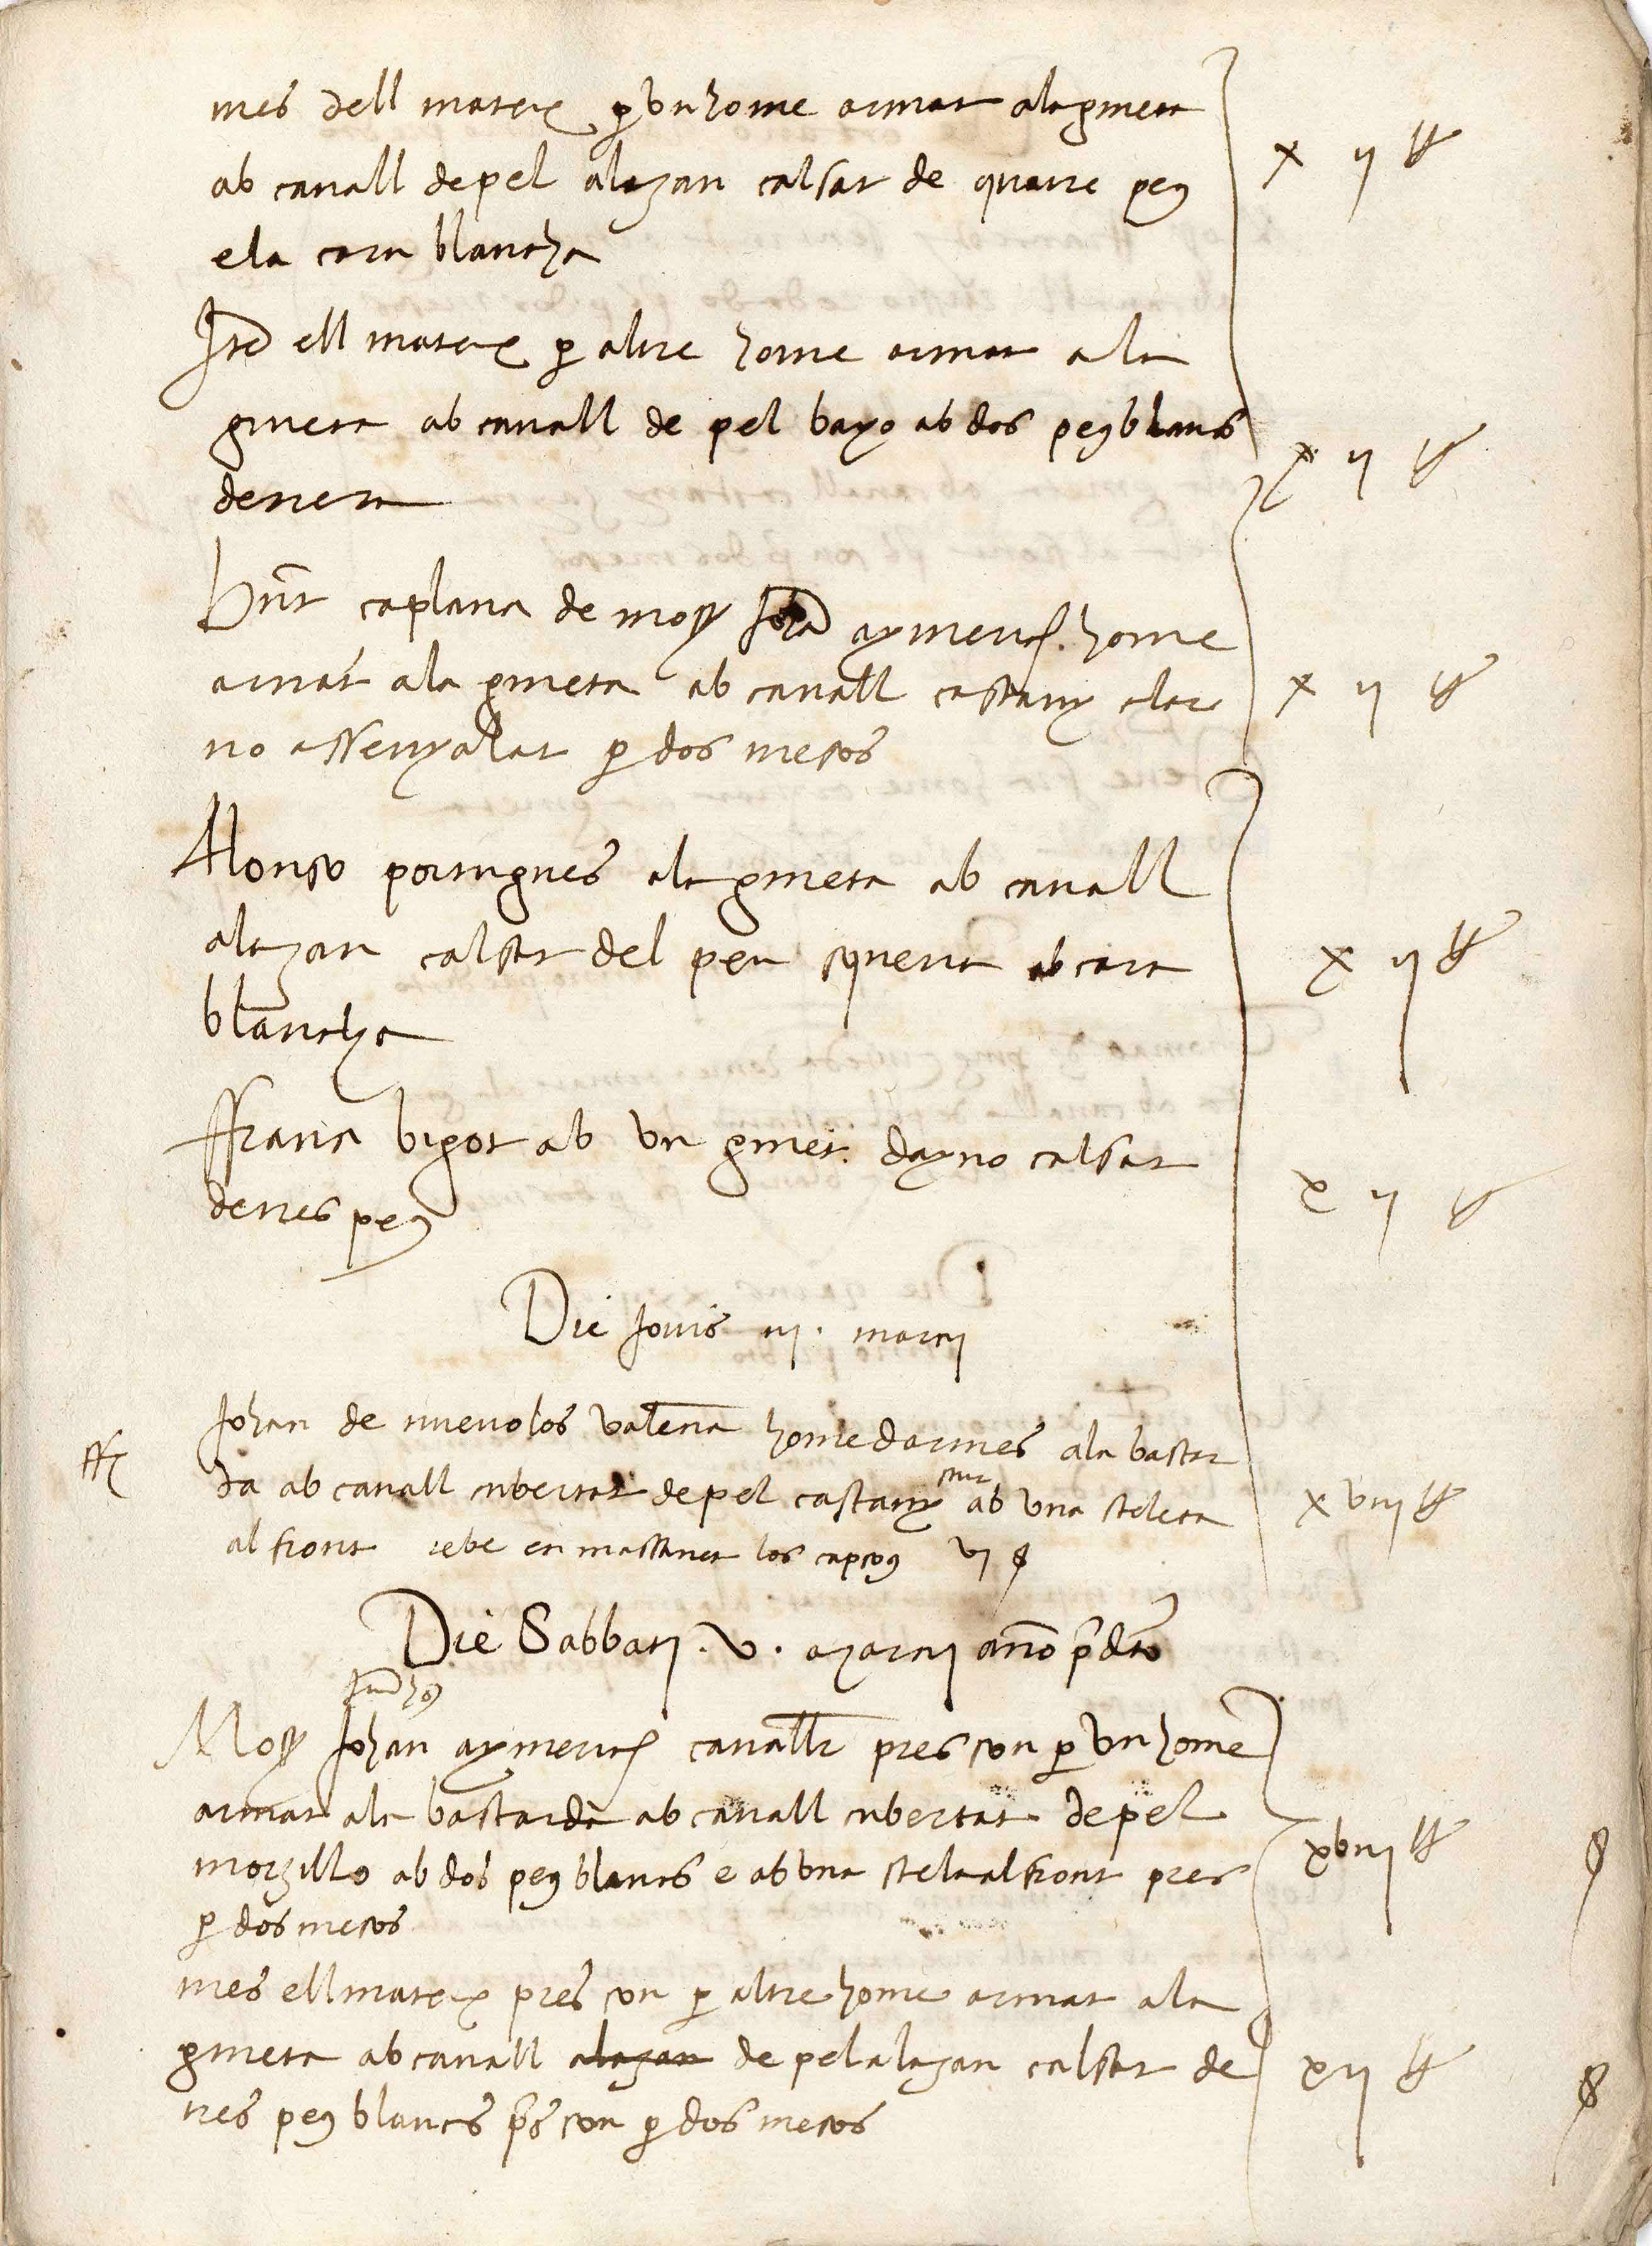 mes dell matex p vn home armat ala gineta
ab cauall de pel alazan calsat de quatre peus x ij ll
e la cara blancha
Item ell matex p altre home armat a la
gineta ab cauall de pel bayo ab dos peus blancs x ij ll
derrera
caplana de moss Joha aymerich. home
armat ala gineta ab cauall castany clar x ij ll
no assenyalat p dos mesos
Alonso portugues ala gineta ab cauall
alazan calsat del peu squerra ab cara x ij ll
blancha
ffranci bigot ab vn ginet. bayno calsat x ij ll
de tres peus
Die Jouis iij. marcij
Johan de nueuolos valencia home darmes ala bastar
da ab cauall cubertat de pel castany scur ab vna steleta xviij ll
al front rebe en massanet los capsous vj s
Die Sabbati . v . marcij anno pdcto
Moss Johan aymerich cauallr pres sou p vn home
armat ala bastarda ab cauall cubertat de pel
morzillo ab dos peus blancs e ab vna stela al front pres xviij ll
p dos mesos
mes ell matex pres sou p altre home armat ala
gineta ab cauall alazan de pel alazan calsat de xij ll
tres peus blancs ps sou p dos mesos